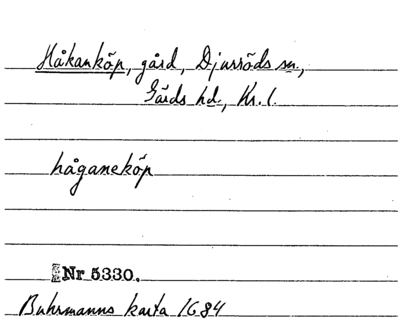 Håkanköp, gård, Djurröds sn.,
Gärds hd., Kr. l.
håganeköp
Nr 5330.
Buhrmanns karta 1684